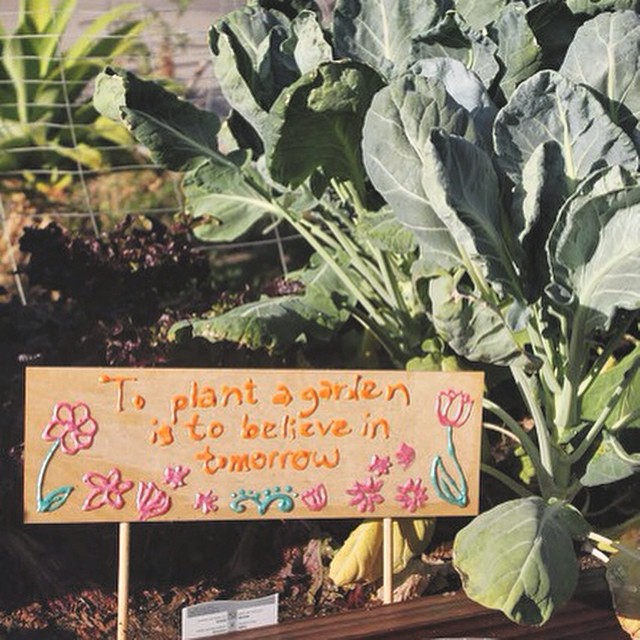 To plant a garden
is to believe in
tomorrow